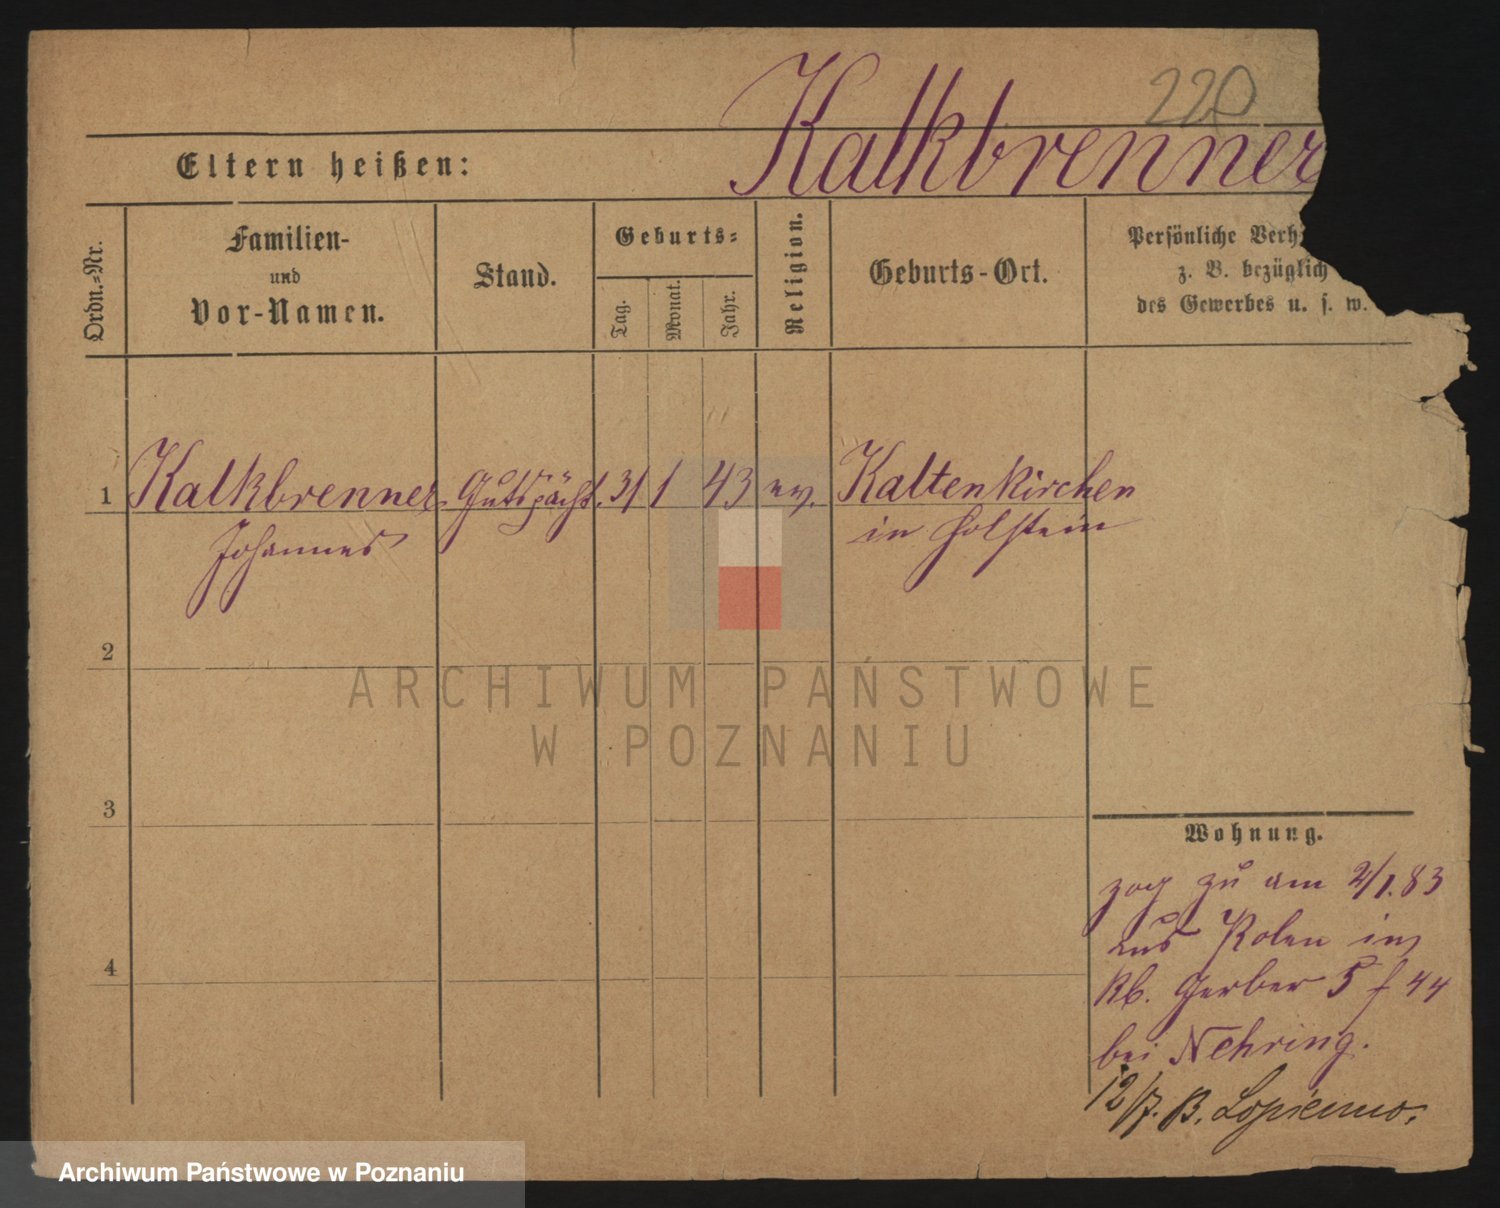 220
Kalkbrenner
Eltern heißen:
Ordn.-Nr.
Familien-
und
Vor-Namen.
Stand.
Geburts-
Tag.
Monat.
Jahr.
Religion.
Geburts-Ort.
Persönliche Verh
z. B. bezüglich
des Gewerbes u. s. w.
1 Kalkbrenner Gutspächt. 31 1 43 ev. Kaltenkirchen
Johannes in Holstein
2
3
4
ARCHIWUM PAŃSTWOWE
W POZNANIU
Wohnung.
zog zu am 2/1.83
aus Polen in
Kb. Gerber 5 f 44
bei Nehring.
12/7. B.
Archiwum Państwowe w Poznaniu